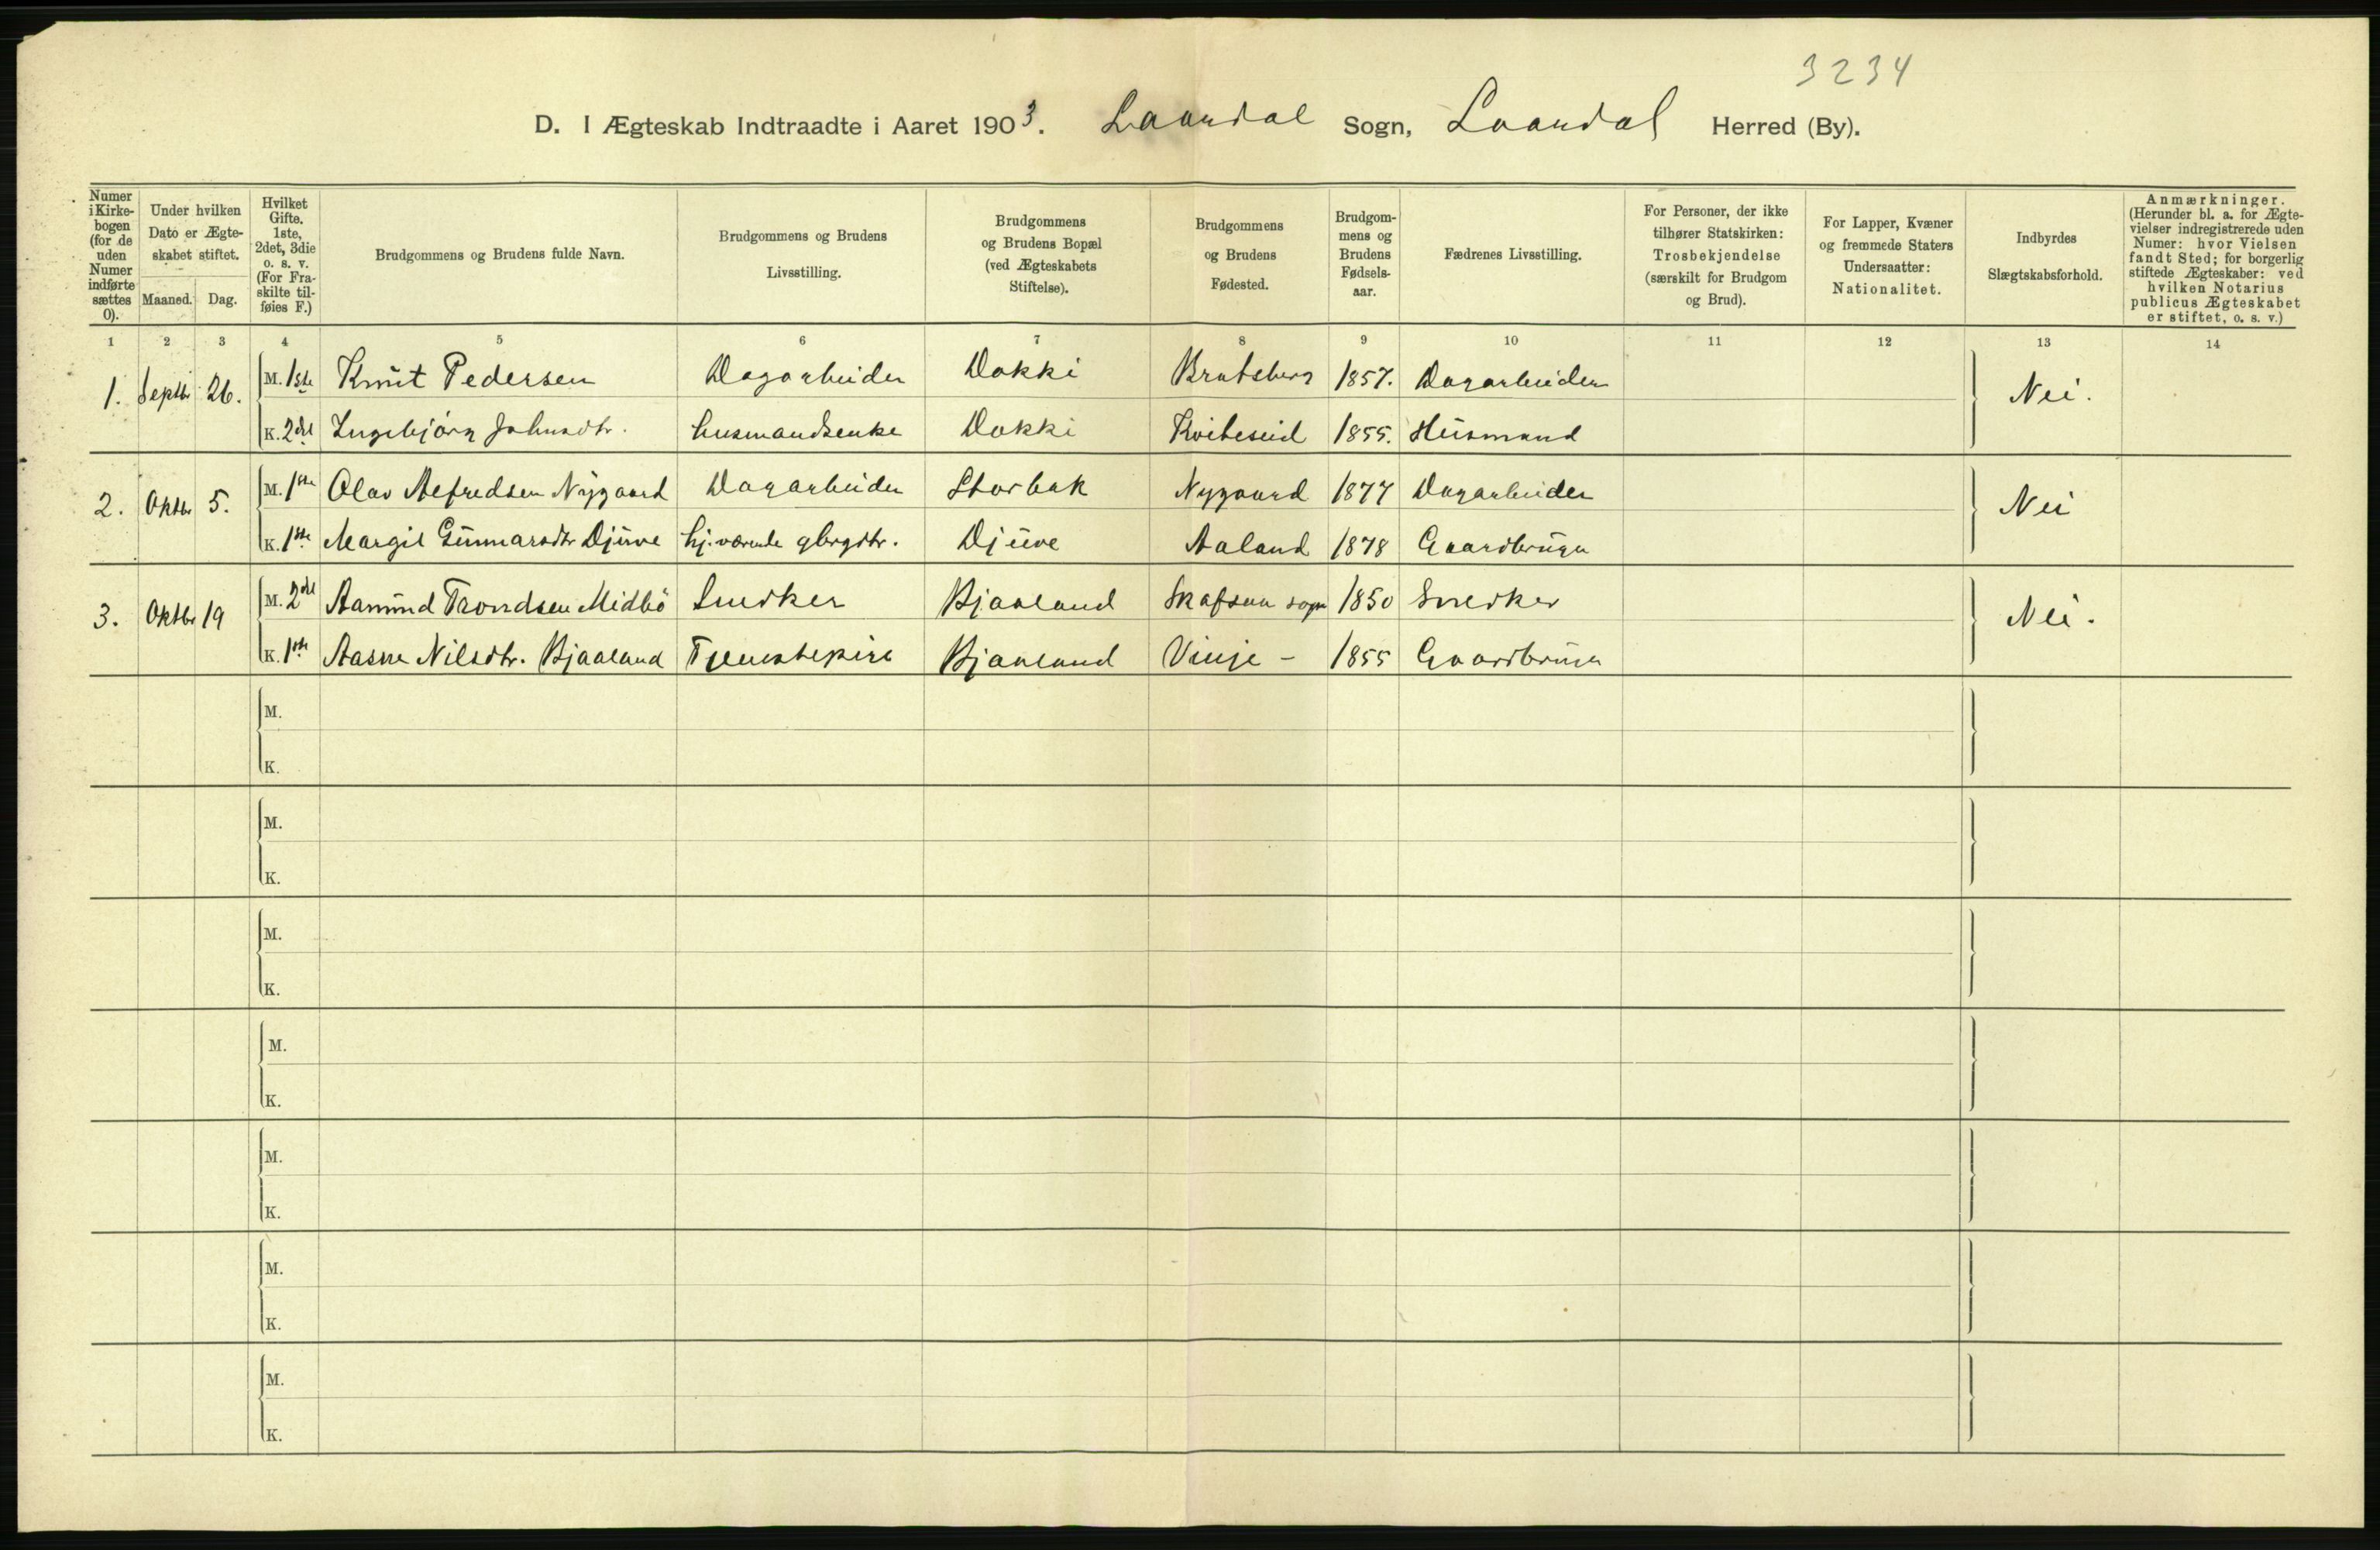 3234
D. I Ægteskab Indtraadte i Aaret 1903. Laardal Sogn, Laardal Herred (By).
Numer i Kirke-bogen (for de uden Numer indførte sættes 0).
Under hvilken Dato er Ægte-skabet stiftet.
Maaned. Dag.
Hvilket Gifte. 1ste, 2det, 3die o. s. v. (For Fra-skilte til-føies F.)
Brudgommens og Brudens fulde Navn.
Brudgommens og Brudens Livsstilling.
Brudgommens og Brudens Bopæl (ved Ægteskabets Stiftelse).
Brudgommens og Brudens Fødested.
Brudgom-mens og Brudens Fødsels-aar.
Fædrenes Livsstilling.
For Personer, der ikke tilhører Statskirken: Trosbekjendelse (særskilt for Brudgom og Brud).
For Lapper, Kvæner og fremmede Staters Undersaatter: Nationalitet.
Indbyrdes Slægtskabsforhold.
Anmærkninger. (Herunder bl. a. for Ægte-vielser indregistrerede uden Numer: hvor Vielsen fandt Sted; for borgerlig stiftede Ægteskaber: ved hvilken Notarius publicus Ægteskabet er stiftet, o. s. v.)
1 2 3 4 5 6 7 8 9 10 11 12 13 14
1. Septbr 26. M. 1ste Knut Pedersen Dagarbeider Dokki Bratsberg 1857. Dagarbeider Nei.
K. 2det Ingebjörg Johnsdtr. husmandsenke Dokki Kviteseid 1855. Husmand
2. Oktbr 5. M. 1ste Olav Alfredsen Nygaard Dagarbeider Storbak Nygaard 1877 Dagarbeider Nei
K. 1ste Margit Gunnarsdtr Djuve hj. værende gbrgdtr. Djuve Aaland 1878 Gaardbruger
3. Oktbr 19 M. 2det Aamund Trondsen Midbö Snedker Bjaaland Skafsaa sogn 1850 Snedker Nei.
K. 1ste Aasne Nilsdtr. Bjaaland Tjenestepige Bjaaland Vinje - 1855 Gaardbruger
M.
K.
M.
K.
M.
K.
M.
K.
M.
K.
M.
K.
M.
K.